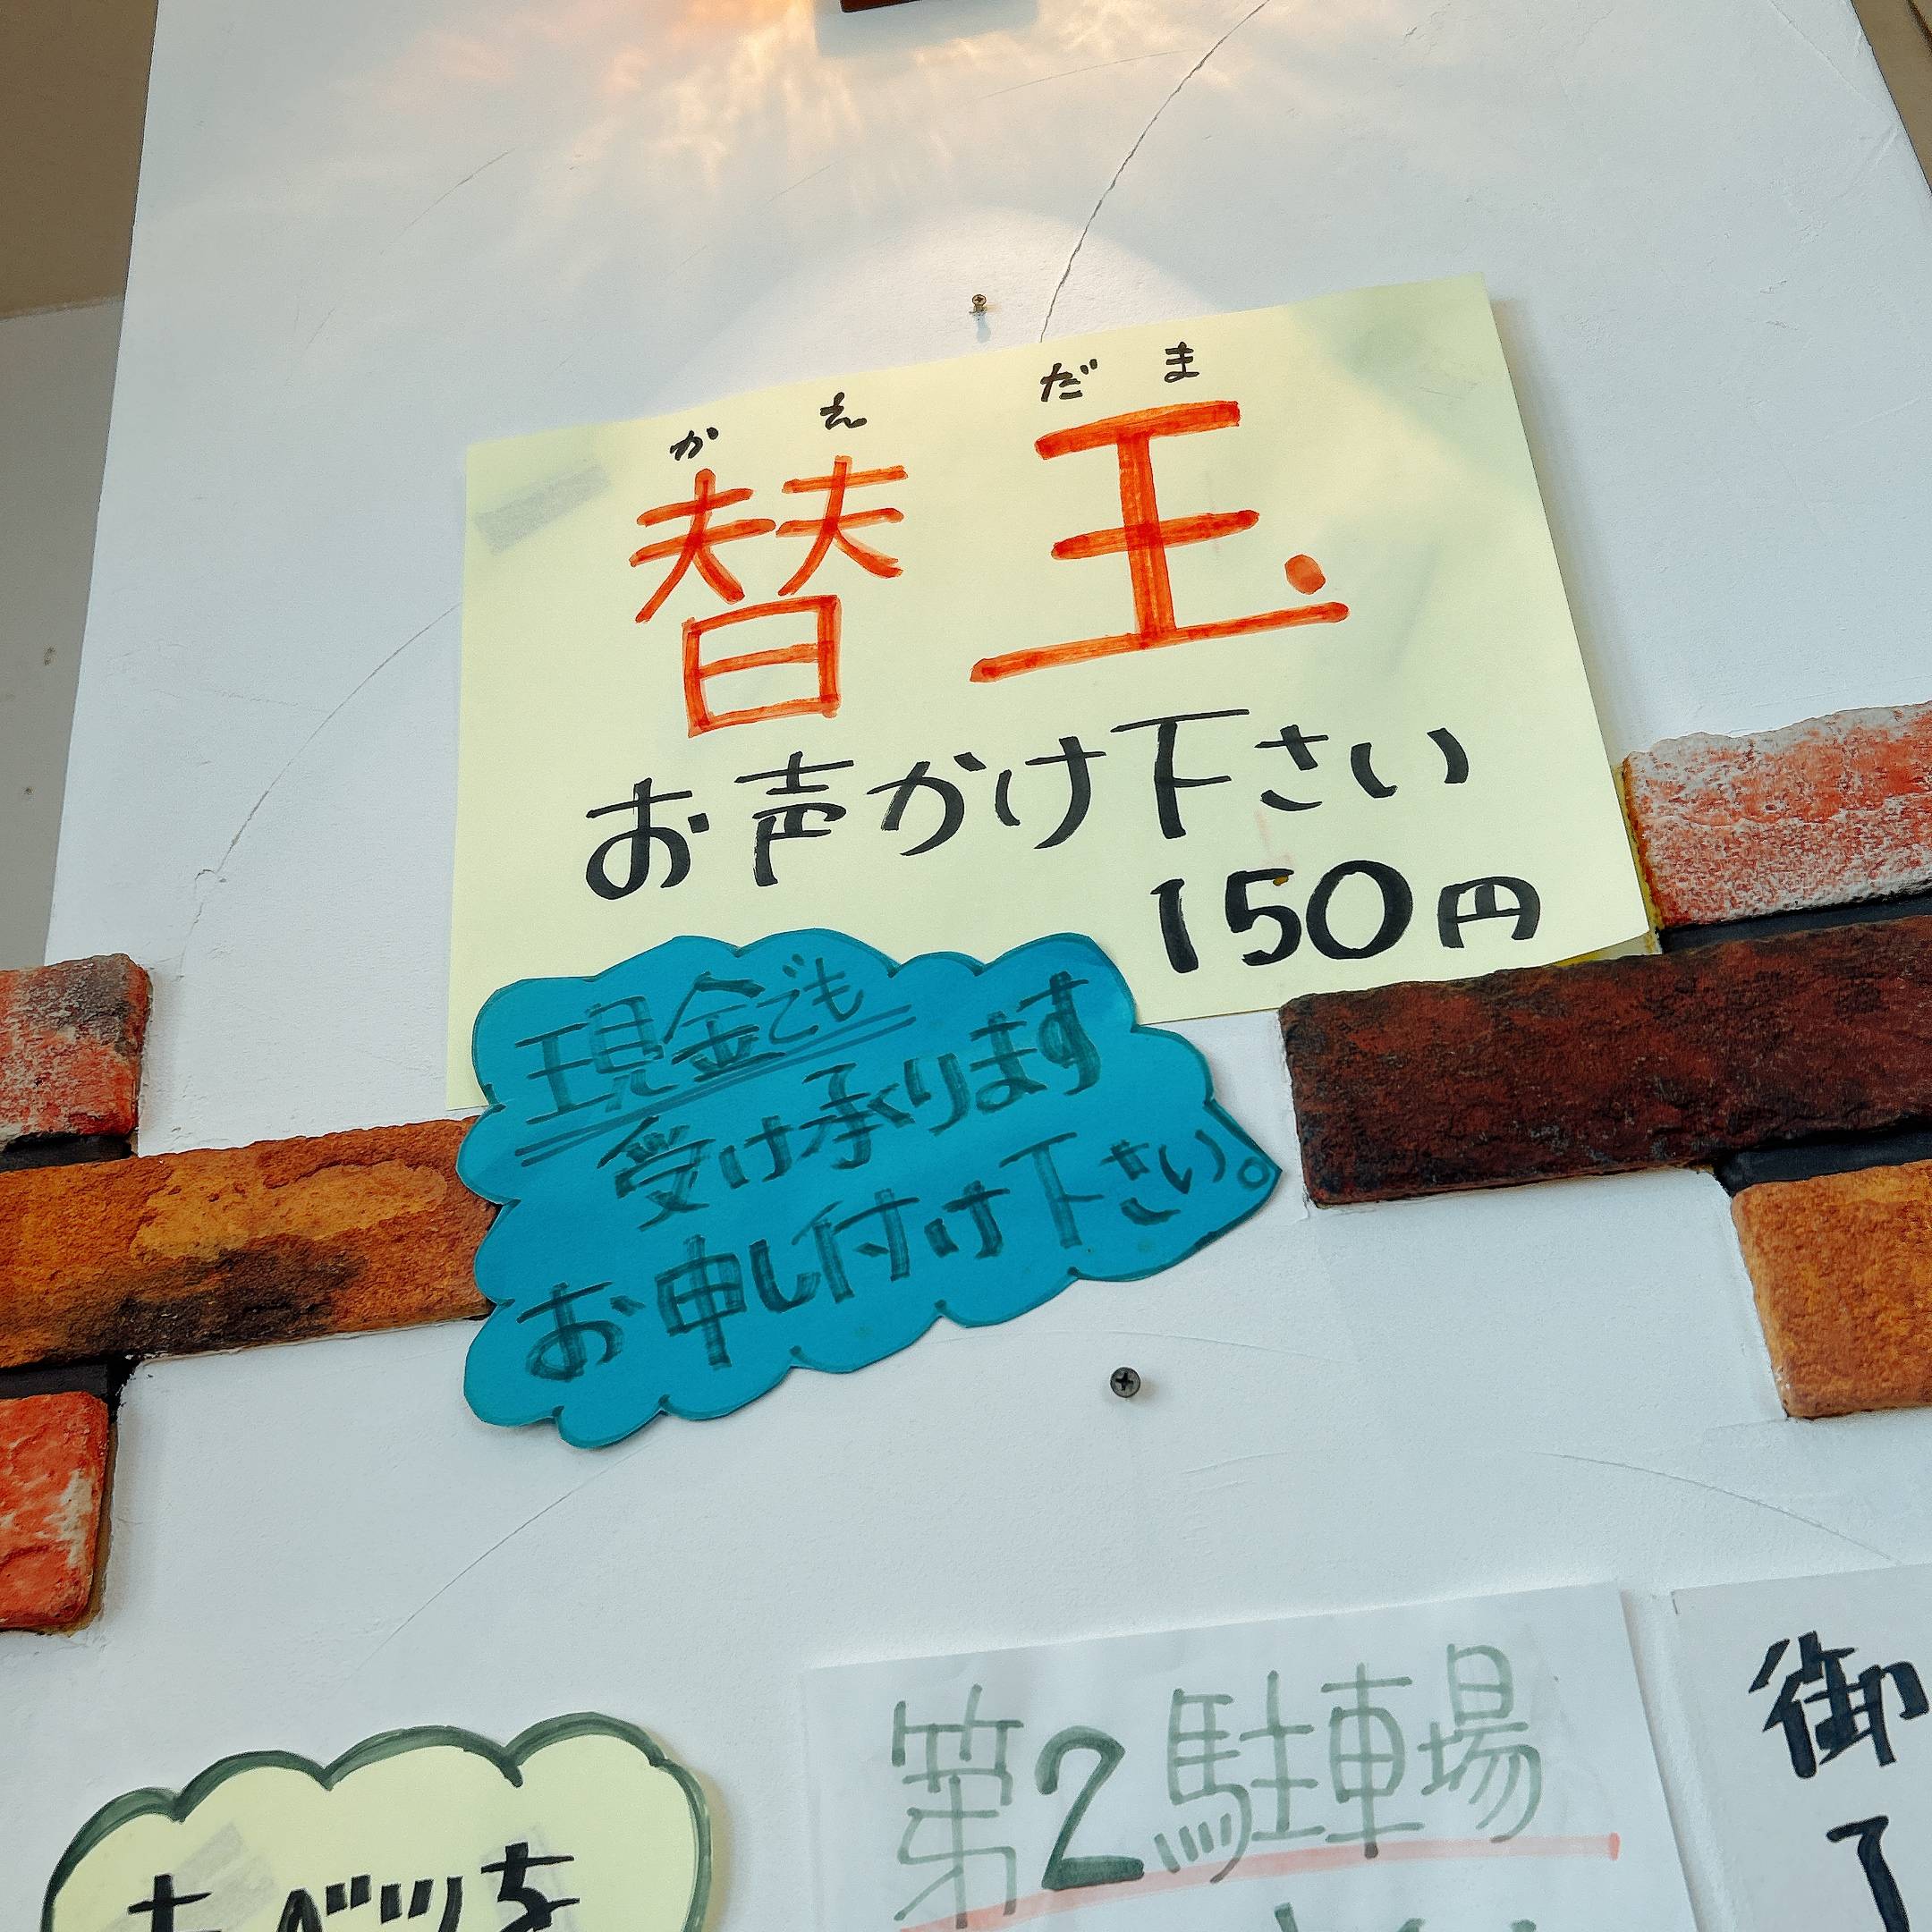 かえだま
替玉
お声かけ下さい
150円
現金でも
受け承ります
お申し付け下さい。
第2駐車場
御